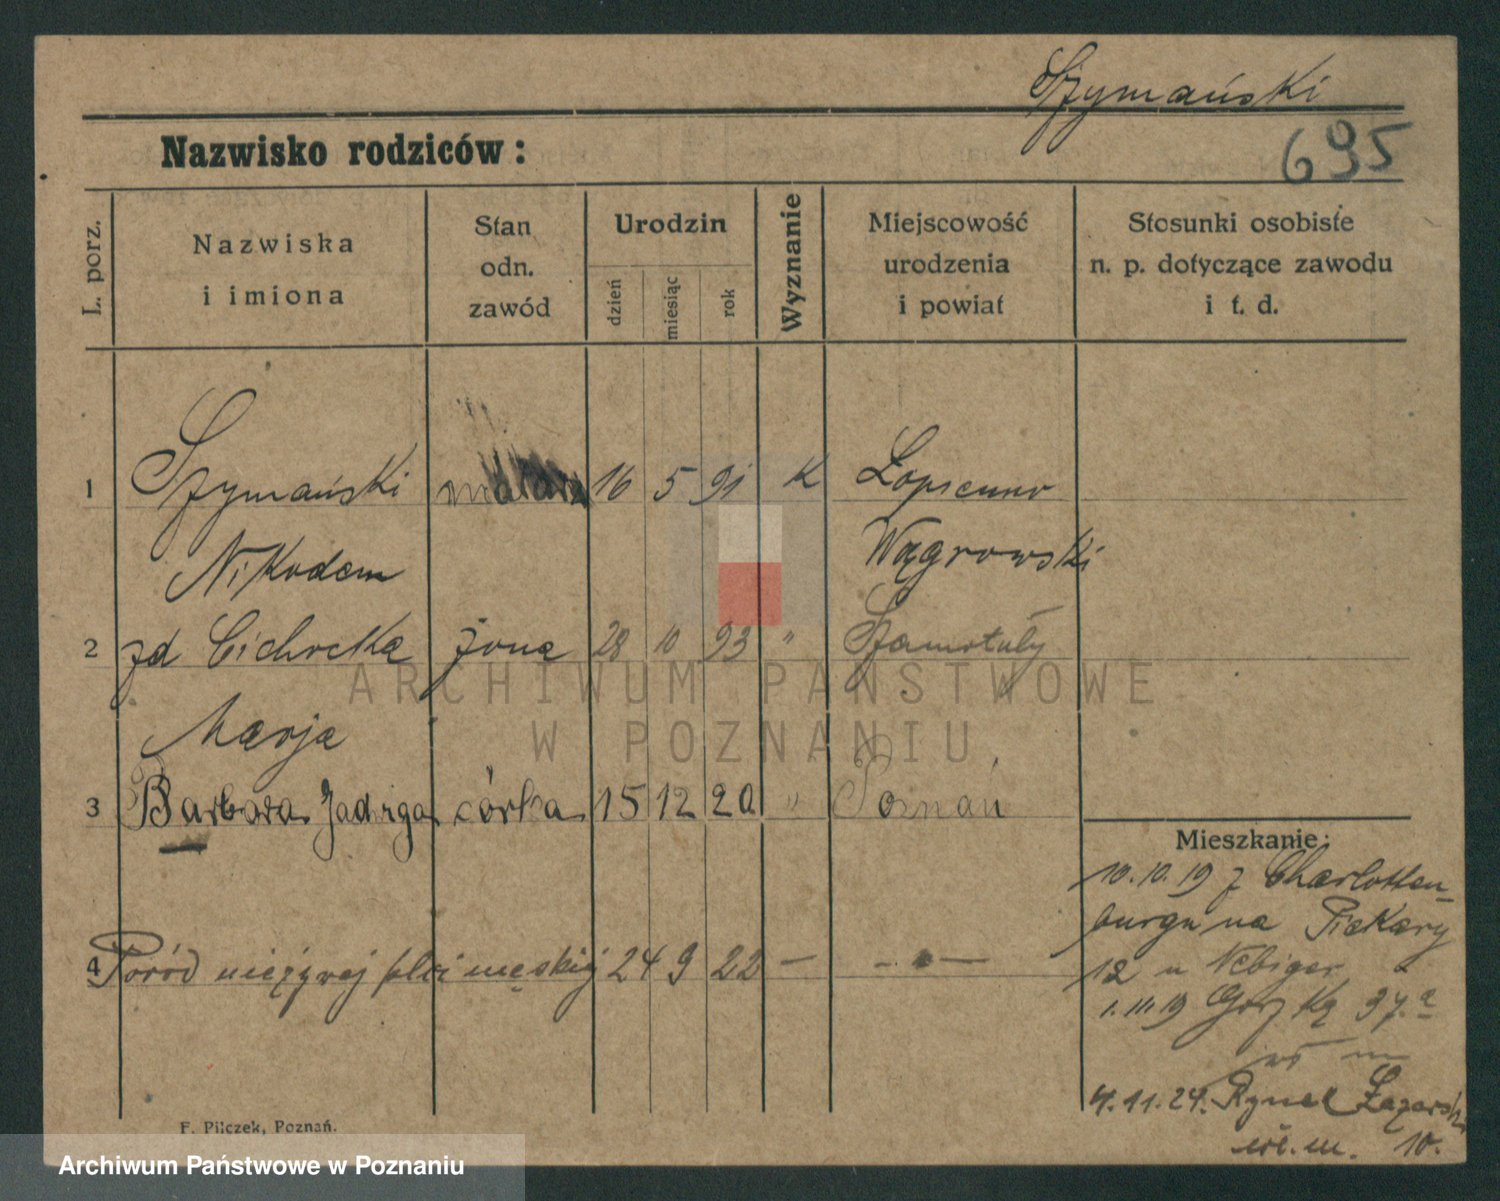 Szymański
Nazwisko rodziców:
695
L. porz.
Nazwiska
i imiona
Stan
odn.
zawód
Urodzin
dzień
miesiąc
rok
Wyznanie
Miejscowość
urodzenia
i powiat
Stosunki osobiste
n. p. dotyczące zawodu
i t. d.
1 Szymański malarz 16 5 91 K Łopienno
Nikodem Wągrowski
2 zd Cichocka żona 28 10 93 " Szamotuły
Marja
3 Barbara Jadwiga córka 15 12 20 " Poznań
4 Poród nieżywej płci męskiej 24 9 22 — — —
Mieszkanie:
10.10.19 z Charlotten-
burga na Piekary
12 u Nebiger
1.11.19 Gorzką 37.a
4.11.24. Rynek Łazarski
wł. m. 10.
F. Pilczek, Poznań.
ARCHIWUM PAŃSTWOWE
W POZNANIU
Archiwum Państwowe w Poznaniu